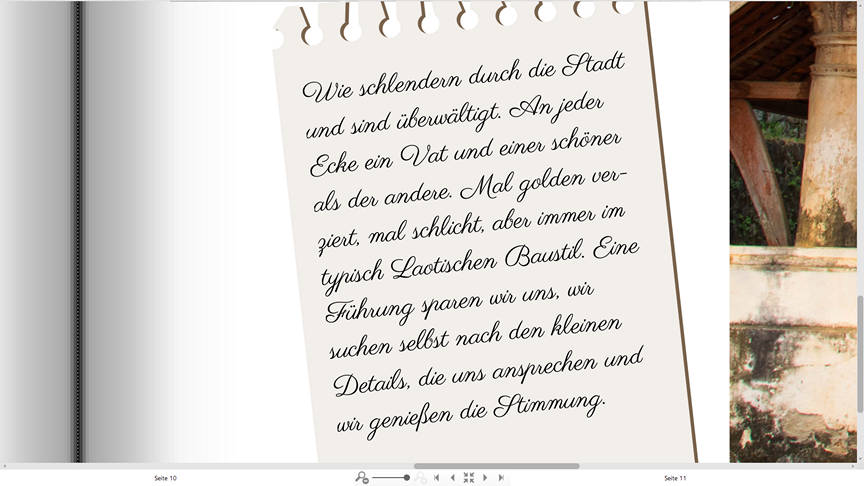 Wie schlendern durch die Stadt
und sind überwältigt. An jeder
Ecke ein Vat und einer schöner
als der andere. Mal golden ver-
ziert, mal schlicht, aber immer im
typisch Laotischen Baustil. Eine
Führung sparen wir uns, wir
suchen selbst nach den kleinen
Details, die uns ansprechen und
wir genießen die Stimmung.
Seite 10
Seite 11